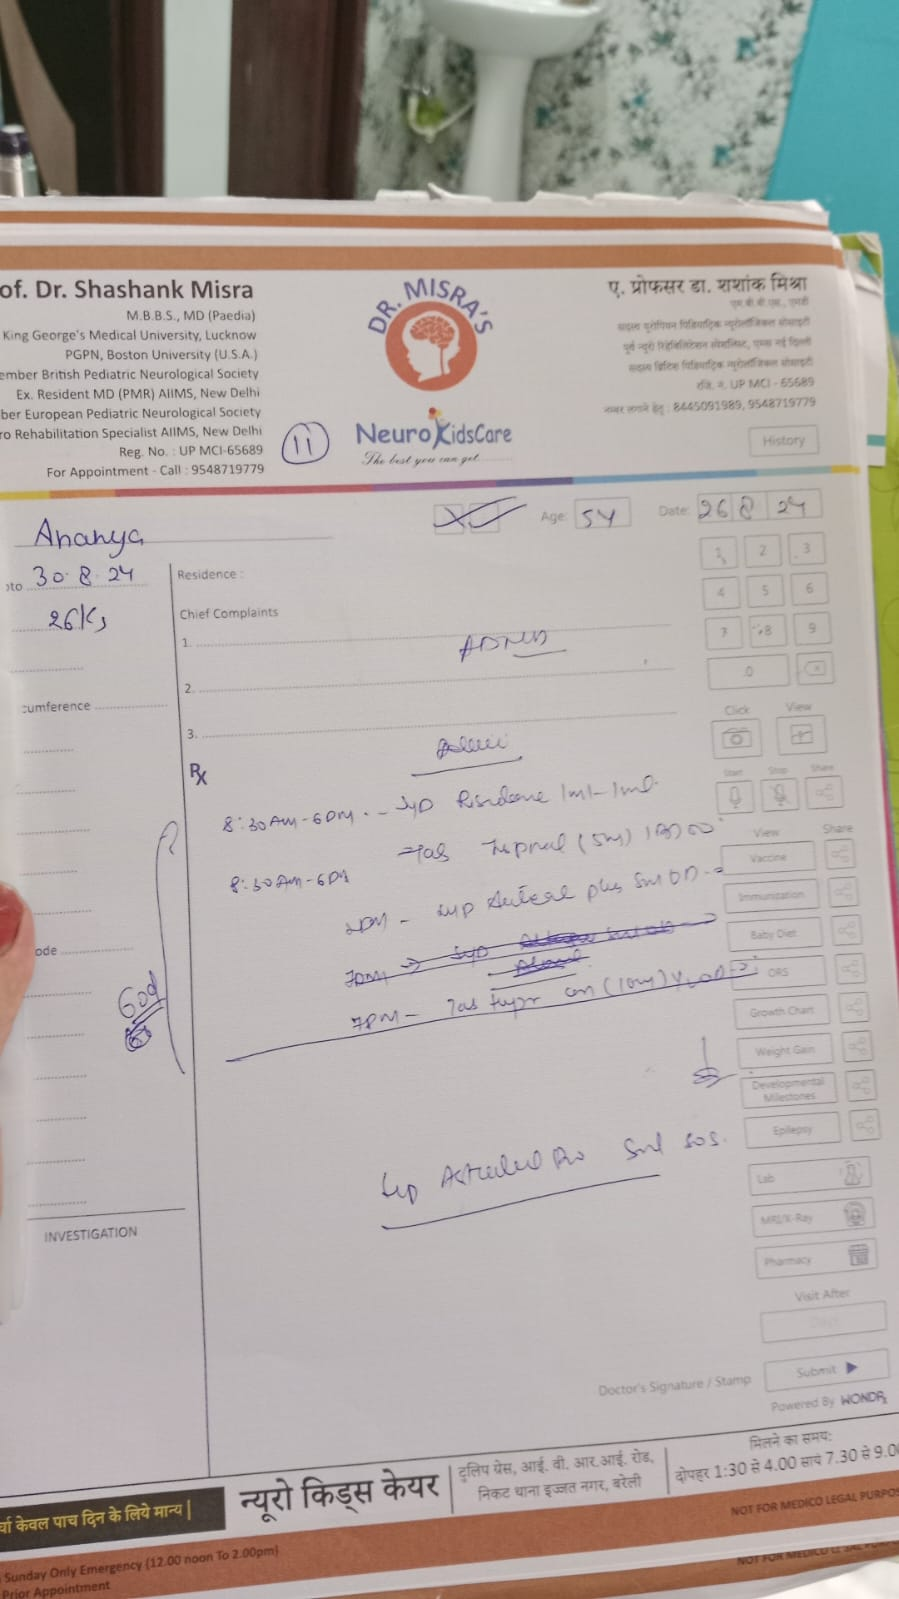 of. Dr. Shashank Misra
M.B.B.S., MD (Paedia)
King George's Medical University, Lucknow
PGPN, Boston University (U.S.A.)
ember British Pediatric Neurological Society
Ex. Resident MD (PMR) AIIMS, New Delhi
ber European Pediatric Neurological Society
ro Rehabilitation Specialist AIIMS, New Delhi
Reg. No. : UP MCI-65689
For Appointment - Call : 9548719779
11
DR. MISRA'S
NeuroKidsCare
The best you can get.......
ए. प्रोफसर डा. शशांक मिश्रा
एम.बी.बी.एस., एमडी
सदस्य यूरोपियन पिडियाट्रिक न्यूरोलॉजिकल सोसाइटी
पूर्व न्यूरो रिहैबिलिटेशन स्पेशलिस्ट, एम्स नई दिल्ली
सदस्य ब्रिटिश पिडियाट्रिक न्यूरोलॉजिकल सोसाइटी
रजि. न. UP MCI - 65689
नम्बर लगाने हेतु : 8445091989, 9548719779
History
Ananya
Age: 5Y
Date: 26 8 24
pto 30.8.24
26Kg
Residence :
Chief Complaints
1.
2.
3.
cumference
ode
INVESTIGATION
Rx
8:30AM-6PM - Syp 1ml-1ml
8:30AM-6PM Tab (5m)
Syp plus 5ml OD
7PM Syp
7PM - Tab (10m)
60d
Syp 5ml SOS.
1 2 3
4 5 6
7 8 9
0
Click View
Start Stop Share
View Share
Vaccine
Immunization
Baby Diet
ORS
Growth Chart
Weight Gain
Developmental Milestones
Epilepsy
Lab
MRI/X-Ray
Pharmacy
Visit After
Days
Submit
Doctor's Signature / Stamp
Powered By WONDRx
र्चा केवल पाच दिन के लिये मान्य |
न्यूरो किड्स केयर
टुलिप ग्रेस, आई. वी. आर.आई. रोड,
निकट थाना इज्जत नगर, बरेली
मिलने का समय:
दोपहर 1:30 से 4.00 सायं 7.30 से 9.0
NOT FOR MEDICO LEGAL PURPOS
Sunday Only Emergency (12.00 noon To 2.00pm)
Prior Appointment